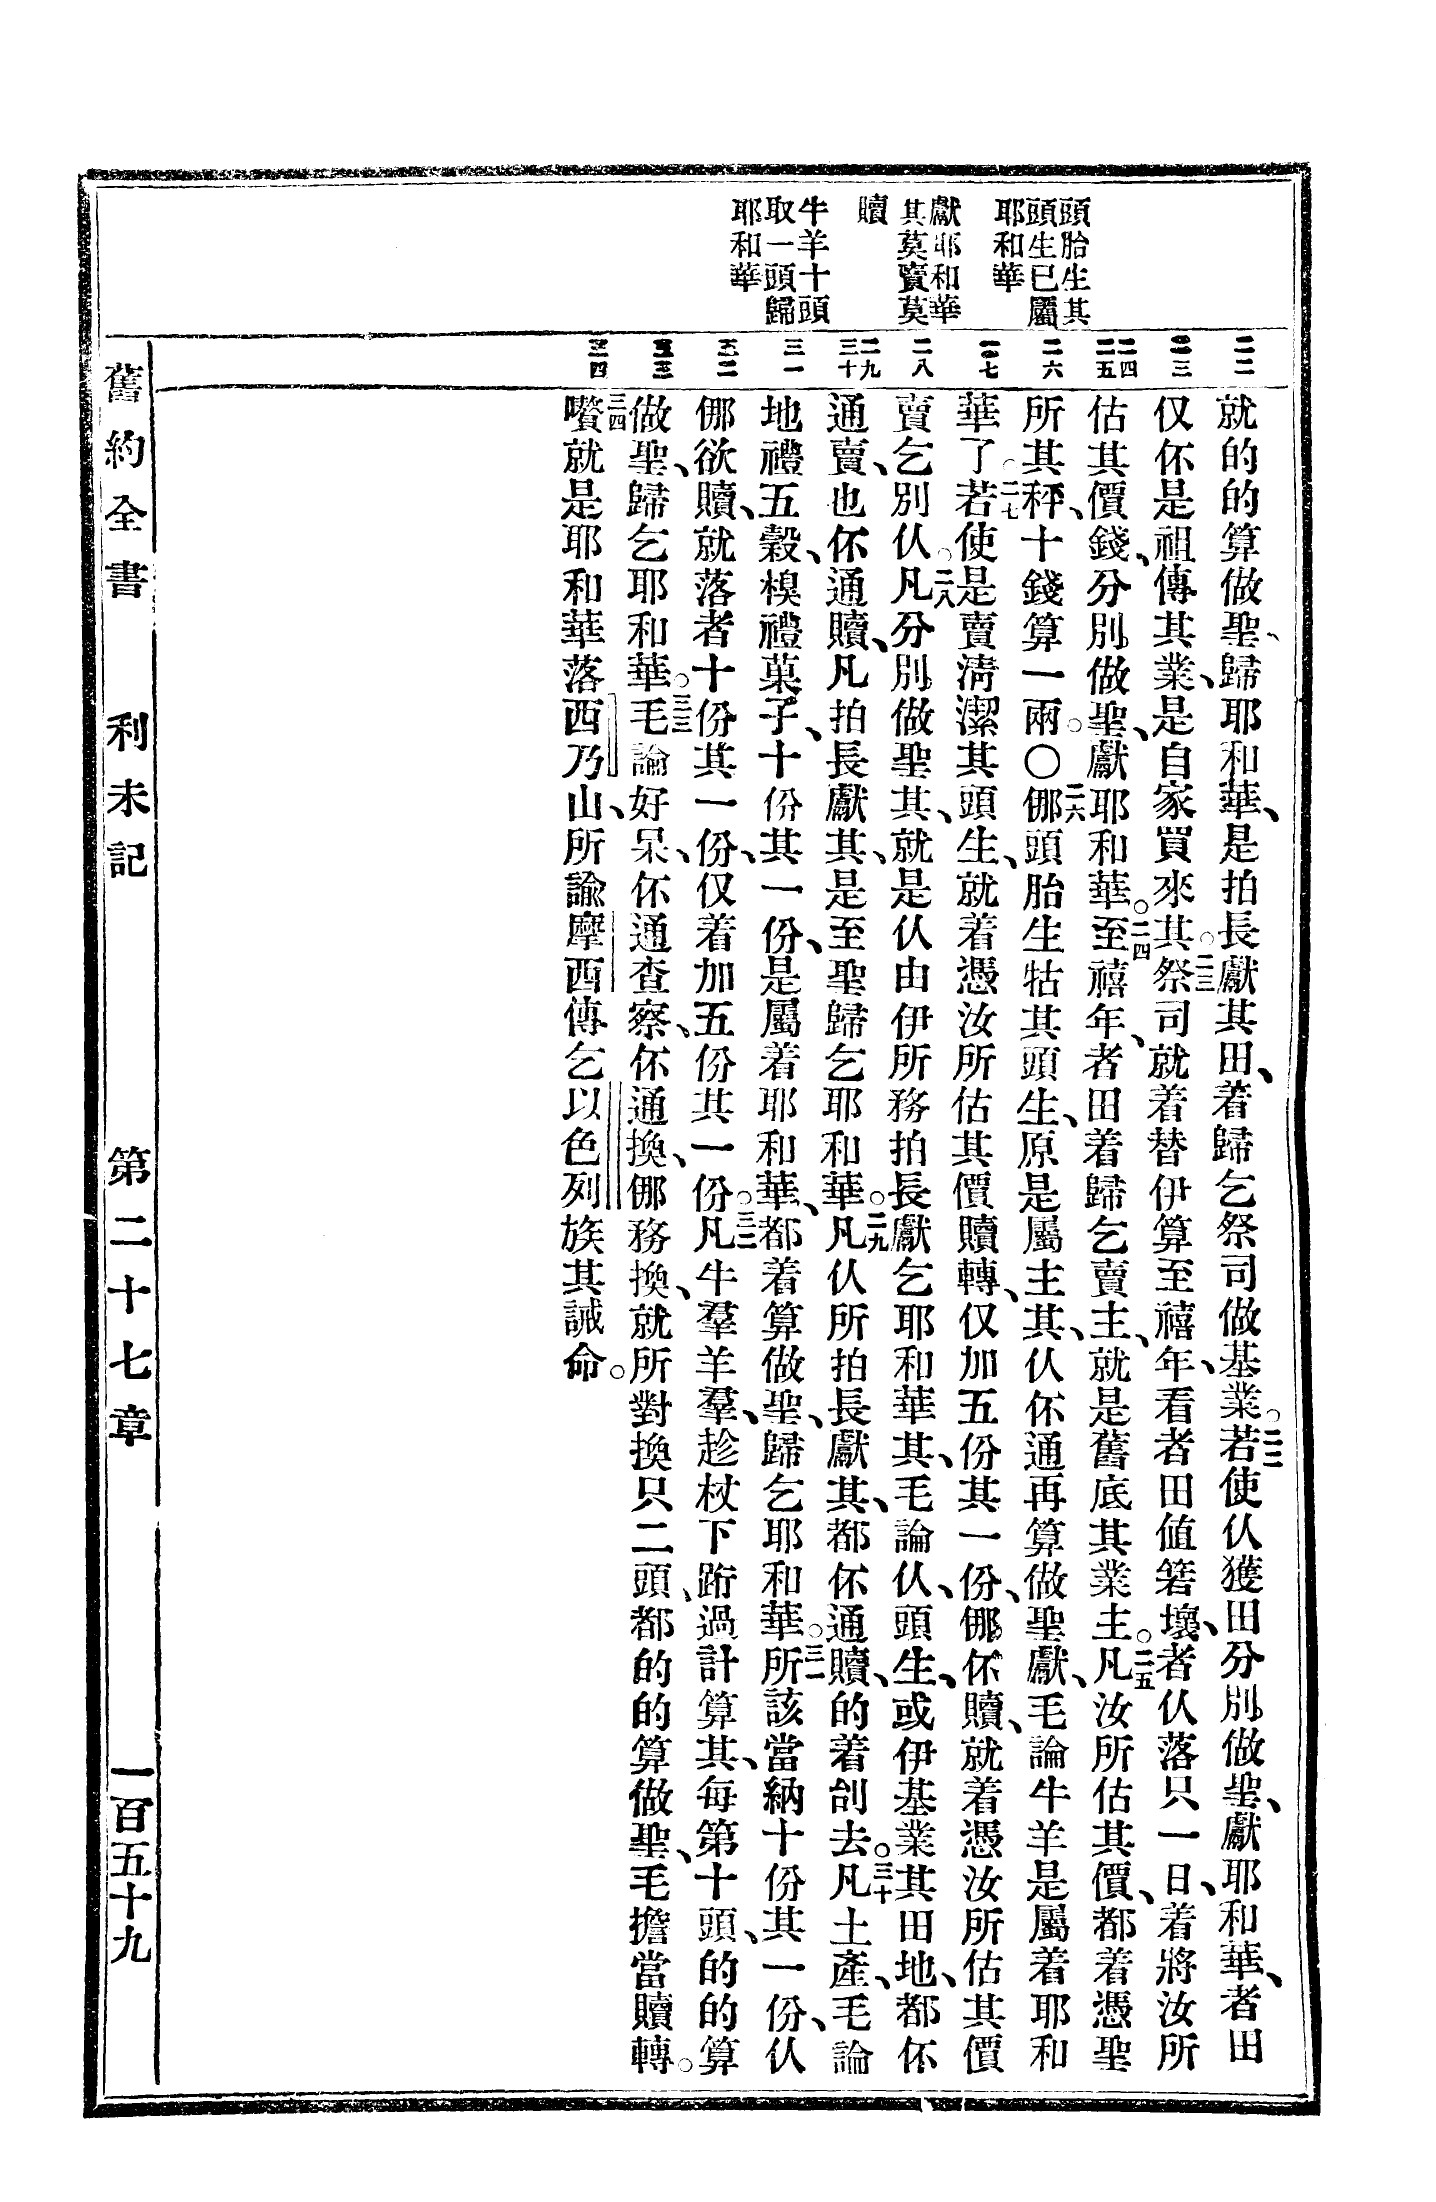 頭胎生其
頭生已屬
耶和華
獻耶和華
其莫賣莫
贖
牛羊十頭
取一頭歸
耶和華
二二
二三
二四
二五
二六
二七
二八
二九
三十
三一
三二
三三
三四
就的的算做聖、歸耶和華、是拍長獻其田、着歸乞祭司做基業。二二若使仈獲田分別做聖、獻耶和華、者田
仅伓是祖傳其業、是自家買來其。二三祭司就着替伊算至禧年、看者田值箬壞、者仈落只一日、着將汝所
估其價錢、分別做聖、獻耶和華。二四至禧年、者田着歸乞賣主、就是舊底其業主。二五凡汝所估其價、都着憑聖
所其秤、十錢算一兩。〇二六倻頭胎生牯其頭生、原是屬主其、仈伓通再算做聖獻、毛論牛羊是屬着耶和
華了。二七若使是賣清潔其頭生、就着憑汝所估其價贖轉、仅加五份其一份、倻伓贖、就着憑汝所估其價
賣乞別仈。二八凡分別做聖其、就是仈由伊所務拍長獻乞耶和華其、毛論仈、頭生、或伊基業其田地、都伓
通賣、也伓通贖、凡拍長獻其、是至聖歸乞耶和華。二九凡仈所拍長獻其、都伓通贖、的着刣去。三十凡土產、毛論
地禮五穀、模禮菓子、十份其一份、是屬着耶和華、都着算做聖、歸乞耶和華。三一所該當納十份其一份、仈
倻欲贖、就落者十份其一份、仅着加五份其一份。三二凡牛羣羊羣、趁杖下跨過計算其、每第十頭、的的算
做聖、歸乞耶和華。三三毛論好呆、伓通查察、伓通換、倻務換、就所對換只二頭、都的的算做聖、毛擔當贖轉。
三四嚽就是耶和華落西乃山、所諭摩西傳乞以色列族其誡命。
舊約全書 利未記 第二十七章 一百五十九